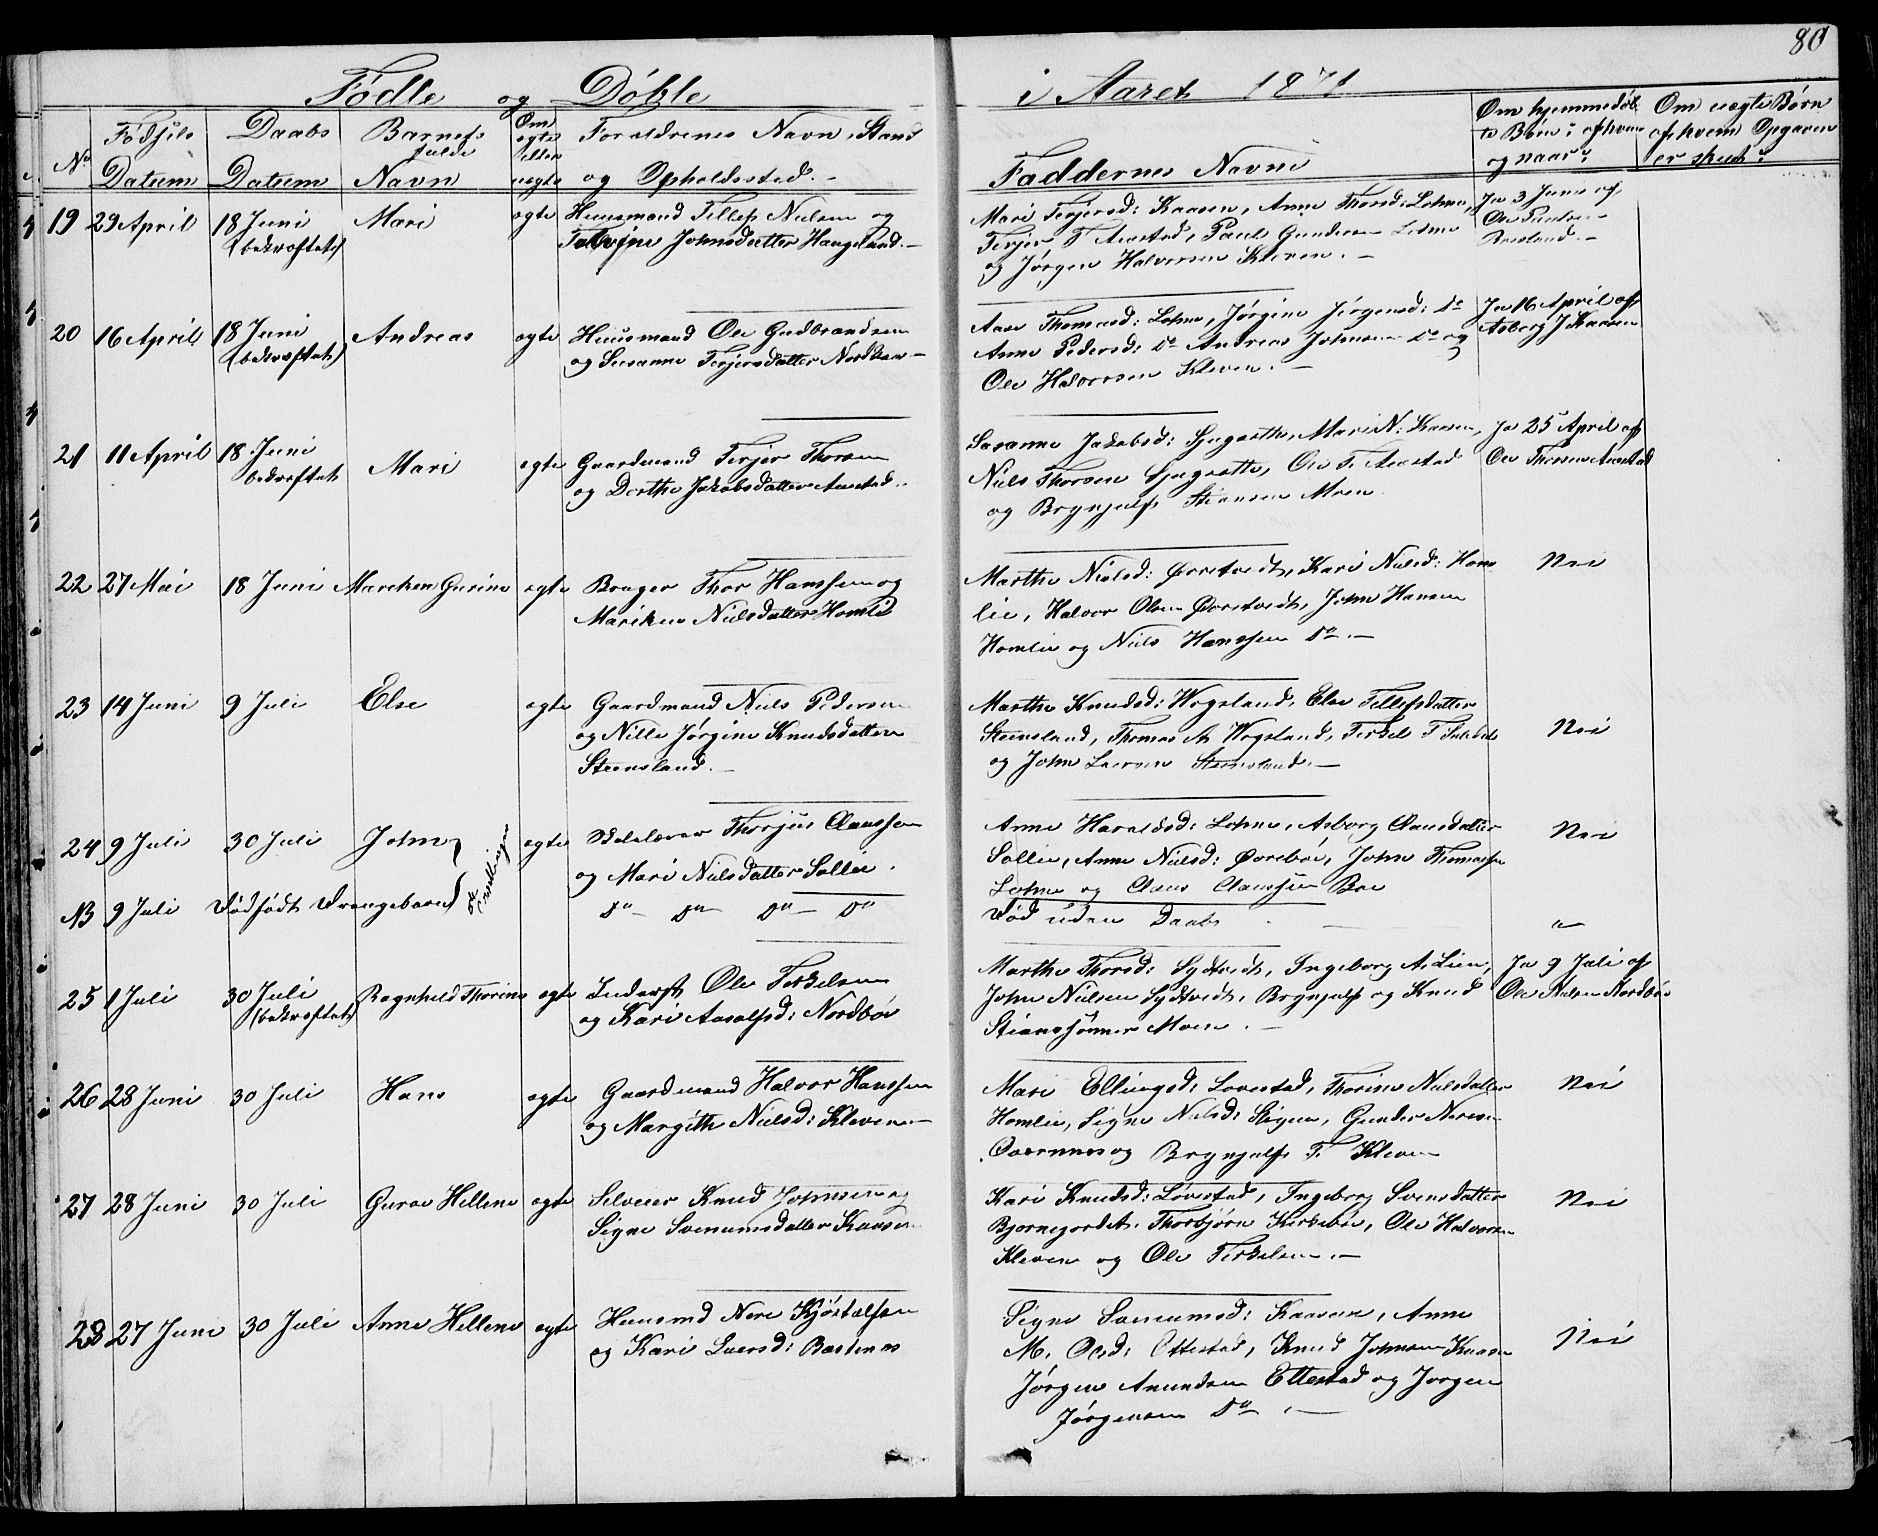 80
Fødte og Døbte i Aaret 1871
No Fødsels Datum Daabs Datum Barnets fulde Navn Om ægte eller uægte Forældrenes Navn, Stand og Opholdssted.
Faddernes Navne Om hjemmedøbte Børn: af hvem og naar? Om uægte Børn af hvem Opgaven er skeet?
19 29 April 18 Juni Mari ægte Huusmand Tellef Nielsen og
(bekræftet) Johnsdatter Haugeland.
Mari Terjersd: Kaasen, Anne Thorsd: Lohne,
Terjer T Auestad, Paul Gundersen Lohne
og Jørgen Halvorsen Kleven.
Ja 3 Juni af
Ole
20 16 April 18 Juni Andreas ægte Huusmand Ole Gudbrandsen
(bekræftet) og Susanne Terjersdatter
Aase Thomasd: Lohne, Jørgine Jørgensd: Do
Anne Pedersd: Do Andreas Johnsen Do og
Ole Halvorsen Kleven.
Ja 16 April af
Asborg J Kaasen
21 11 April 18 Juni Mari ægte Gaardmand Terjer Thorsen
bekræftet og Dorthe Jakobsdatter Auestad.
Susanne Jakobsd: Mari N: Kaasen,
Niels Thorsen Ole T. Auestad
og Brynjulf Stiansen Moen
Ja 25 April af
Ole Thorsen Auestad
22 27 Mai 18 Juni Mareken Gurine ægte Bruger Thor Hanssen og
Mariken Nielsdatter Homli
Marthe Nielsd: Øvretvedt, Kari Nielsd: Hom
lie, Halvor Olsen Øvretvedt, John Hansen
Homlie og Niels Hanssen Do.
Nei
23 14 Juni 9 Juli Else ægte Gaardmand Niels Pedersen
og Nille Jørgine Knudsdatter
Steensland.
Marthe Knudsd: Wegsland, Else Tellefsdatter
Steensland, Thomas A. Wegsland, Terkel T
og John Larsen Steensland.
Nei
24 9 Juli 30 Juli John ægte Skolelærer Thorjus Claussen
og Mari Nielsdatter Sollie.
Anne Haraldsd: Lohne, Asborg Clausdatter
Sollie, Anne Nielsd: Øvrebøe, John Thomassen
Lohne og Claus Claussen Bøe
Nei
NB 9 Juli Dødfødt Drengebarn Do Do Do Do
Tvillinger
Død uden Daab
"
25 1 Juli 30 Juli Ragnhild Thorine ægte Inderst Ole Terkelsen
(bekræftet) og Kari Aasulfsd: Nordbøe
Marthe Thorsd: Sydtvedt, Ingeborg A. Lien,
John Nielsen Sydtvedt, Brynjulf og Knud
Stianssønner Moen.
Ja 9 Juli af
Ole Nielsen Nordbøe
26 28 Juni 30 Juli Hans ægte Gaardmand Halvor Hanssen
og Margithe Nielsd: Kleven
Mari Ellingsd: Lovestad, Thorine Nielsdatter
Homlie, Signe Nielsd: Stigen, Gunder Neresen
Oversness og Brynjulf T. Kleven
Nei
27 28 Juni 30 Juli Guroe Hellene ægte Selveier Knud Johnsen og
Signe Svenumsdatter Kaasen
Kari Knudsd: Løvestad, Ingeborg Svensdatter
Thorbjørn Kirkebøe, Ole Halvorsen
Kleven og Ole Terkelsen.
Nei
28 27 Juni 30 Juli Anne Hellene ægte Huusmd Nere Kjøstelsen
og Kari Sversd: Bastnes
Signe Svenumsd: Kaasen, Anne
M. Olsd: Ettestad, Knud Johnsen Kaasen
Jørgen Amundsen Ettestad og Jørgen
Jørgensen Do.
Nei